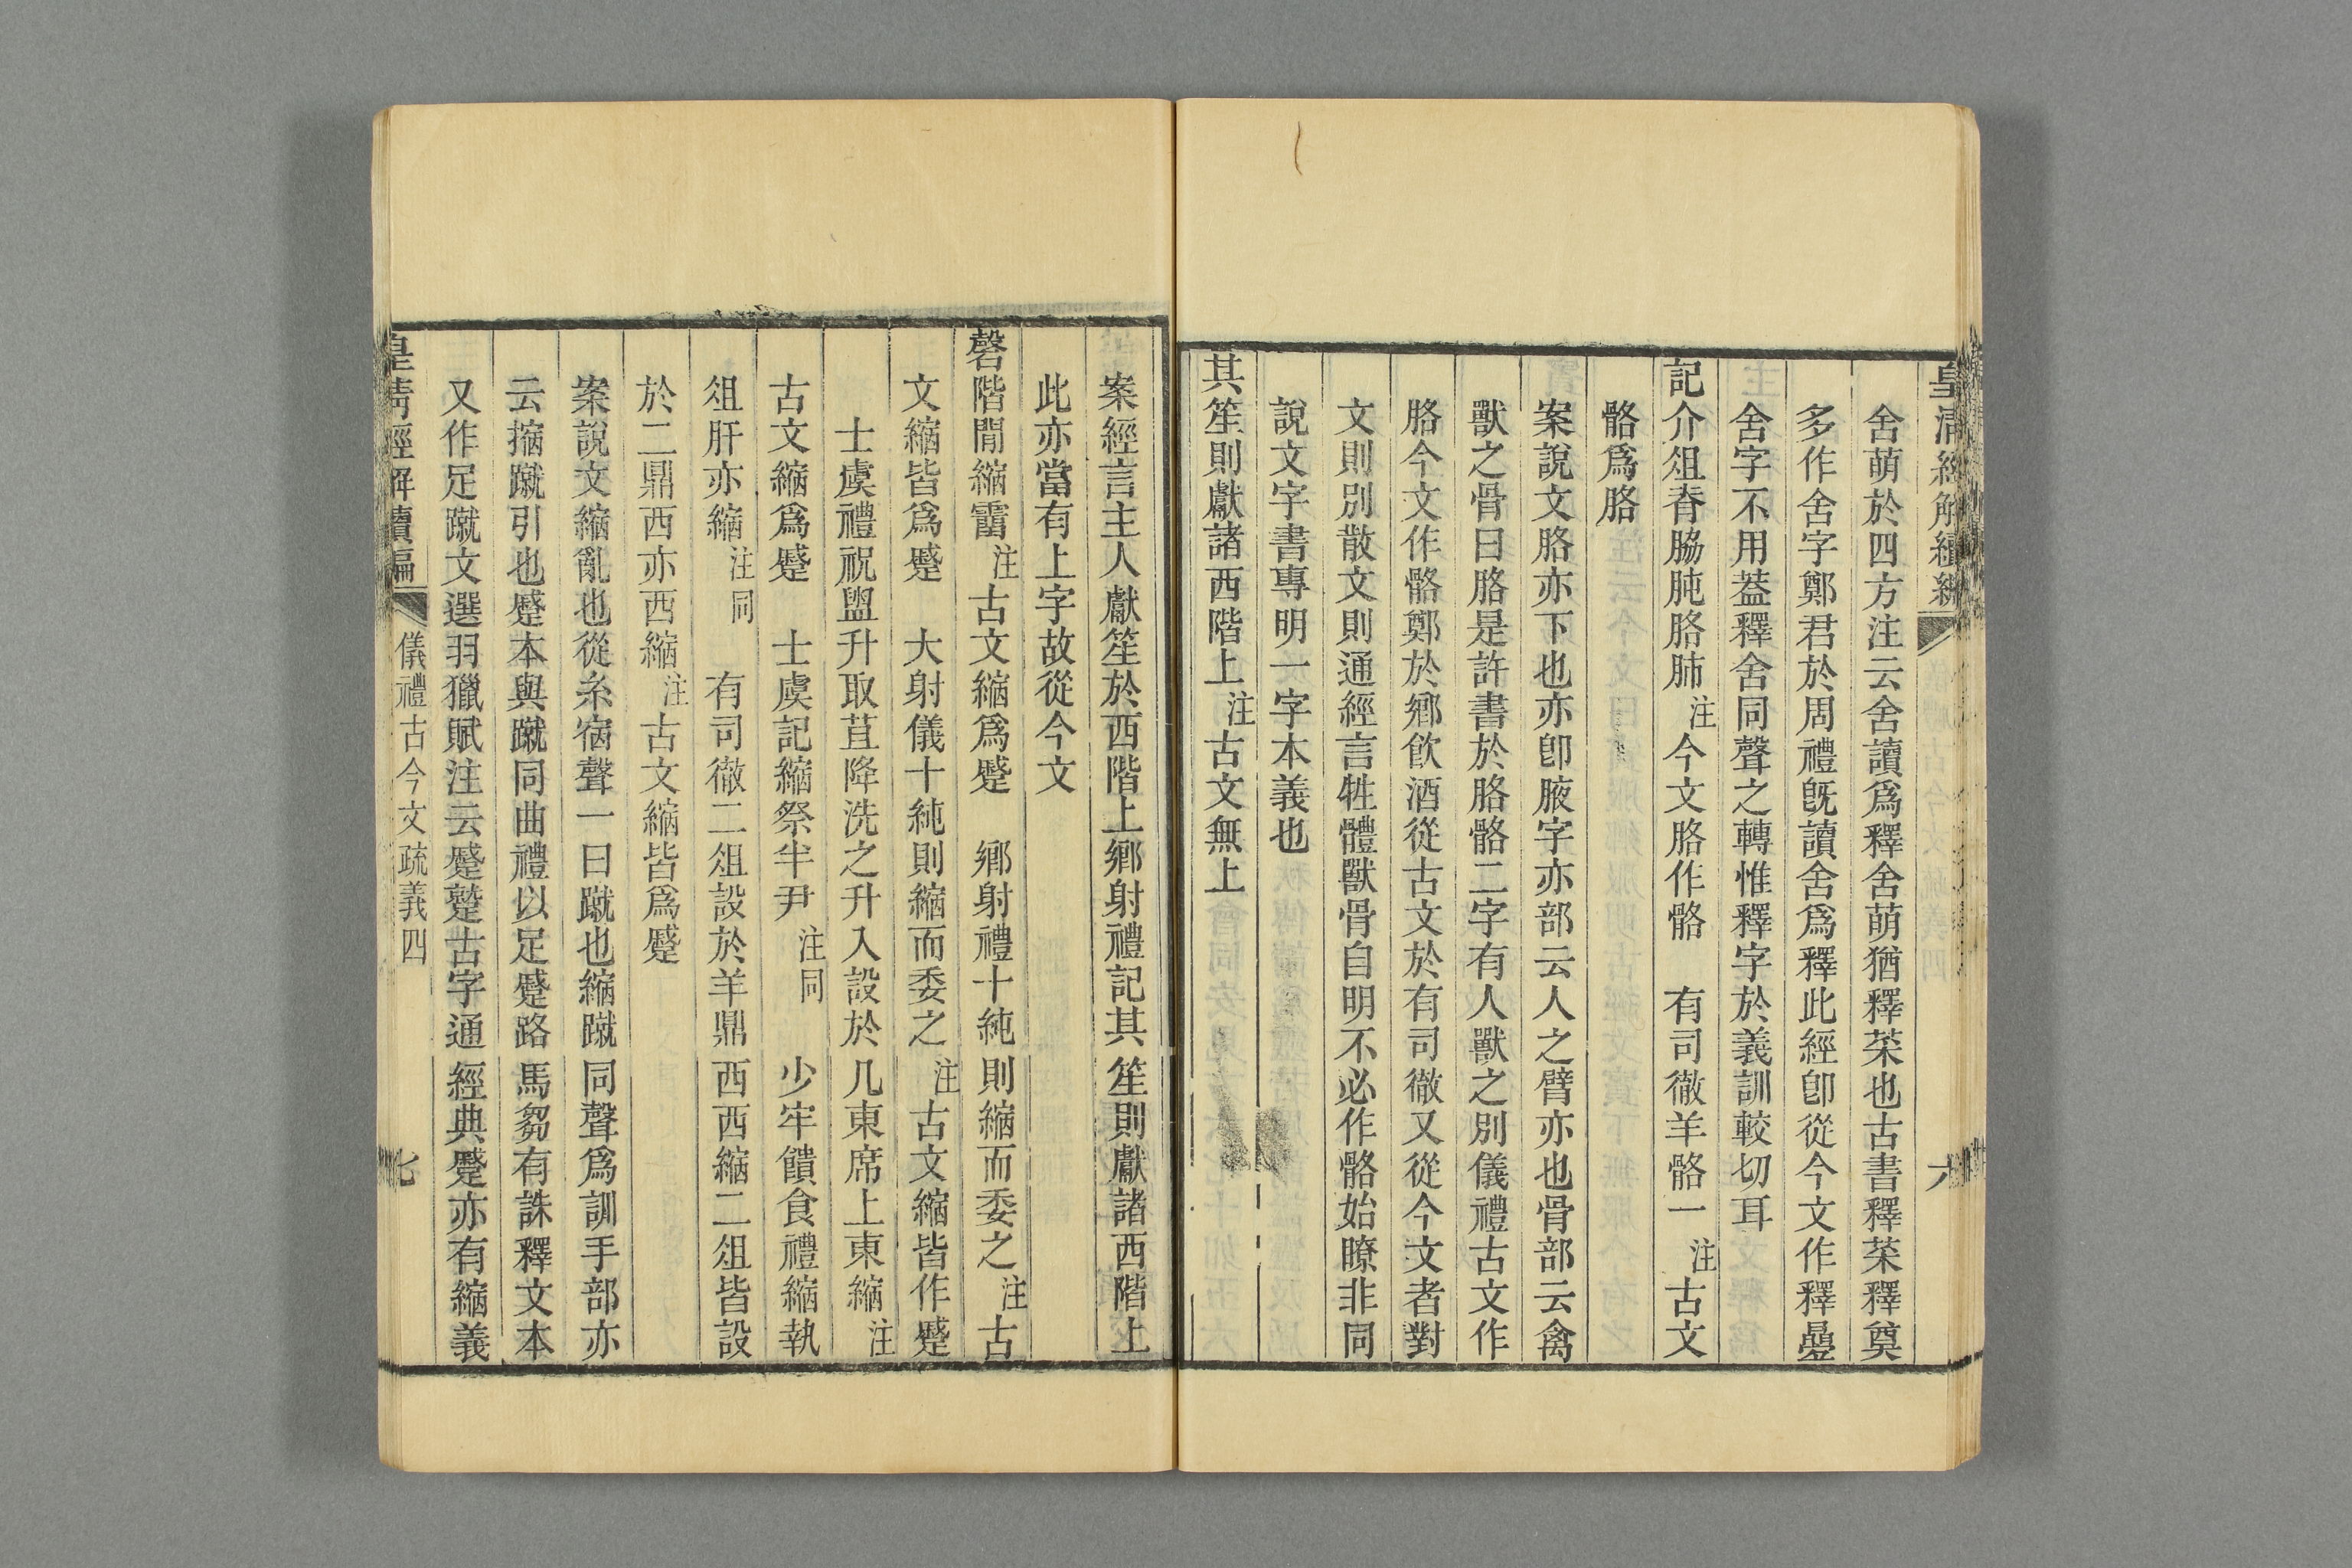 皇清經解續編 六
舍萌於四方注云舍讀爲釋舍萌猶釋菜也古書釋菜釋奠
多作舍字鄭君於周禮旣讀舍爲釋此經卽從今文作釋㬪
舍字不用葢釋舍同聲之轉惟釋字於義訓較切耳
記介俎脊脇肫胳肺注今文胳作骼 有司徹羊骼一注古文
骼爲胳
案說文胳亦下也亦卽腋字亦部云人之臂亦也骨部云禽
獸之骨曰骼是許書於胳骼二字有人獸之別儀禮古文作
胳今文作骼鄭於鄉飮酒從古文於有司徹又從今文者對
文則別散文則通經言牲體獸骨自明不必作骼始瞭非同
說文字書專明一字本義也
其笙則獻諸西階上注古文無上
案經言主人獻笙於西階上鄉射禮記其笙則獻諸西階上
此亦當有上字故從今文
磬階閒縮霤注古文縮爲蹙 鄉射禮十純則縮而委之注古
文縮皆爲蹙 大射儀十純則縮而委之注古文縮皆作蹙
士虞禮祝盥升取苴降洗之升入設於几東席上東縮注
古文縮爲蹙 士虞記縮祭半尹注同 少牢饋食禮縮執
俎肝亦縮注同 有司徹二俎設於羊鼎西西縮二俎皆設
於二鼎西亦西縮注古文縮皆爲蹙
案說文縮亂也從糸宿聲一曰蹴也縮蹴同聲爲訓手部亦
云摍蹴引也蹙本與蹴同曲禮以足蹙路馬芻有誅釋文本
又作足蹴文選羽獵賦注云蹙蹵古字通經典蹙亦有縮義
皇清經解續編 儀禮古今文疏義四 七